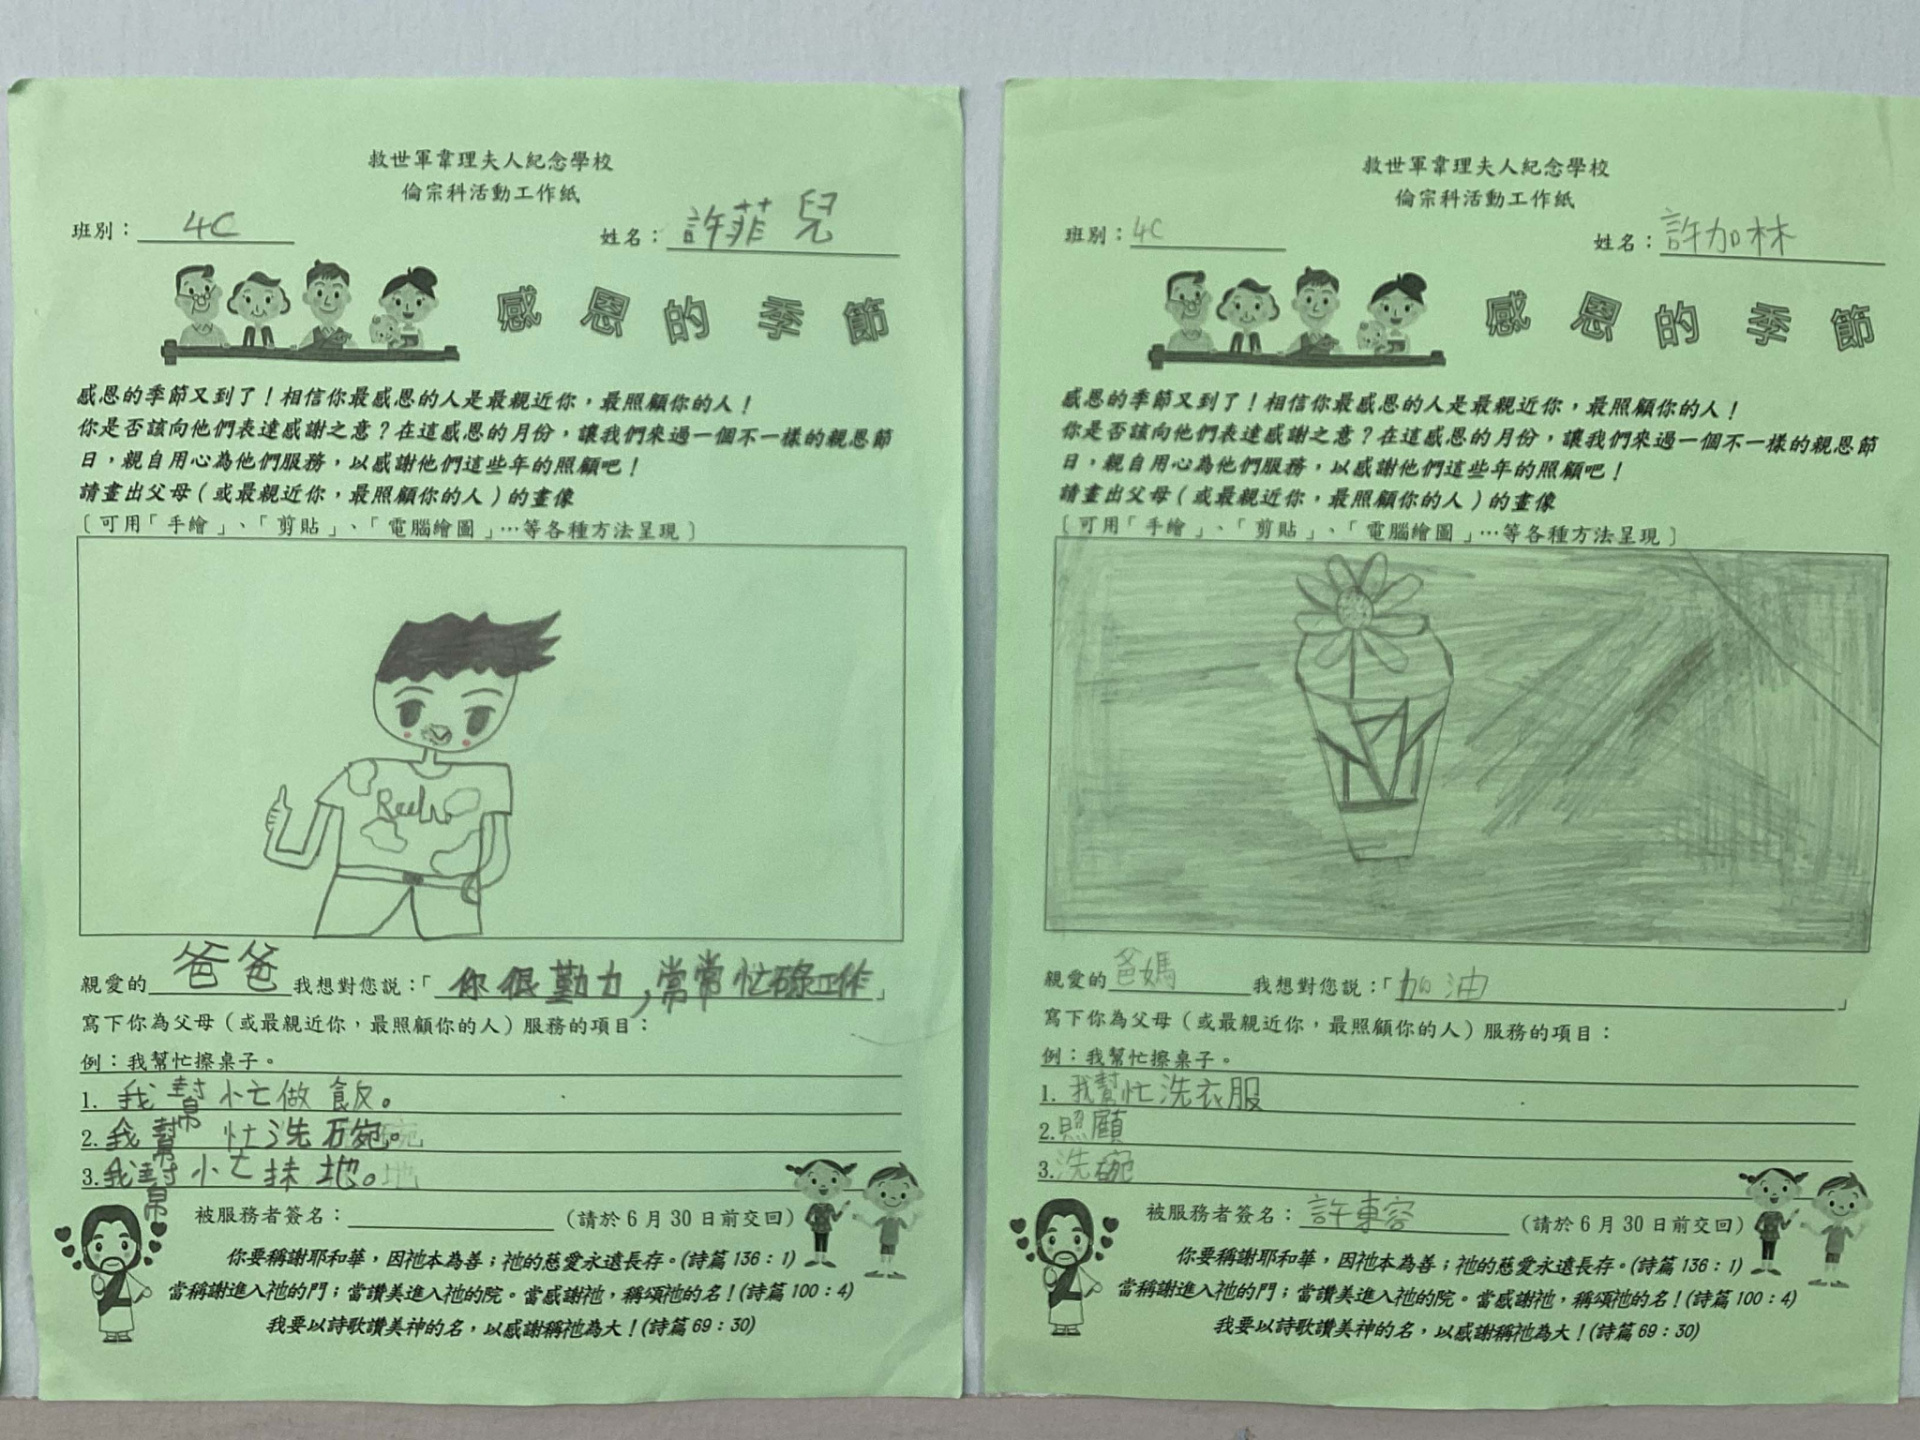 救世軍韋理夫人紀念學校
倫宗科活動工作紙
班別：4C 姓名：許菲兒
感恩的季節
感恩的季節又到了！相信你最感恩的人是最親近你，最照顧你的人！
你是否該向他們表達感謝之意？在這感恩的月份，讓我們來過一個不一樣的親恩節
日，親自用心為他們服務，以感謝他們這些年的照顧吧！
請畫出父母（或最親近你，最照顧你的人）的畫像
〔可用「手繪」、「剪貼」、「電腦繪圖」…等各種方法呈現〕
親愛的爸爸我想對您說：「你很勤力，常常忙碌工作」
寫下你為父母（或最親近你，最照顧你的人）服務的項目：
例：我幫忙擦桌子。
1. 我幫忙做飯。
2. 我幫忙洗碗。
3. 我幫忙抹地。
被服務者簽名： （請於6月30日前交回）
你要稱謝耶和華，因祂本為善；祂的慈愛永遠長存。(詩篇136：1)
當稱謝進入祂的門；當讚美進入祂的院。當感謝祂，稱頌祂的名！(詩篇100：4)
我要以詩歌讚美神的名，以感謝稱祂為大！(詩篇69：30)
救世軍韋理夫人紀念學校
倫宗科活動工作紙
班別：4C 姓名：許加林
感恩的季節
感恩的季節又到了！相信你最感恩的人是最親近你，最照顧你的人！
你是否該向他們表達感謝之意？在這感恩的月份，讓我們來過一個不一樣的親恩節
日，親自用心為他們服務，以感謝他們這些年的照顧吧！
請畫出父母（或最親近你，最照顧你的人）的畫像
〔可用「手繪」、「剪貼」、「電腦繪圖」…等各種方法呈現〕
親愛的爸媽我想對您說：「加油」
寫下你為父母（或最親近你，最照顧你的人）服務的項目：
例：我幫忙擦桌子。
1. 我幫忙洗衣服
2. 照顧
3. 洗碗
被服務者簽名：許東容 （請於6月30日前交回）
你要稱謝耶和華，因祂本為善；祂的慈愛永遠長存。(詩篇136：1)
當稱謝進入祂的門；當讚美進入祂的院。當感謝祂，稱頌祂的名！(詩篇100：4)
我要以詩歌讚美神的名，以感謝稱祂為大！(詩篇69：30)